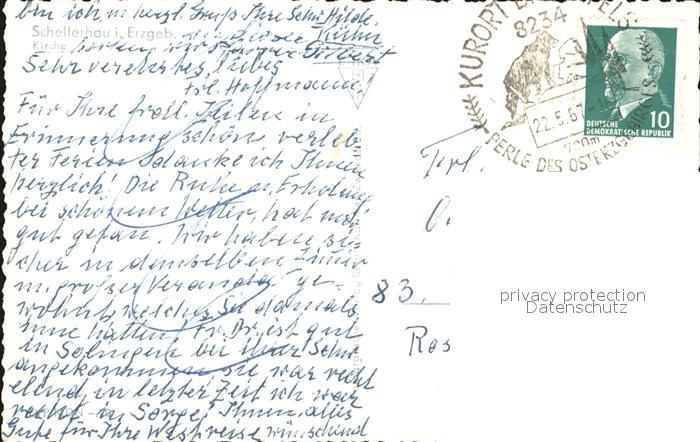 bin ich, m. herzl. Gruß Ihre Schw. Hilde.
Schellerhau i. Erzgeb.
Kirche
Sehr verehrtes, liebes
Frl. Hoffmann,
Für Ihre frdl. Zeilen in
Erinnerung schön verleb-
ter Ferien danke ich Ihnen
herzlich! Die Ruhe u. Erholung
bei schönem Wetter, hat mir
gut getan. Wir haben si-
cher in demselben Zimmer
m. großer Veranda ge-
wohnt, welches Sie damals
inne hatten. Fr. Dr. ist gut
in Solingen bei ihrer Schw.
angekommen, sie war recht
elend in letzter Zeit ich war
recht in Sorge. Ihnen alles
Gute für Ihre Westreise wünschend
KURORT
8234
22.5.67
790m
PERLE DES OSTERZGEBIRGES
10
DEUTSCHE
DEMOKRATISCHE REPUBLIK
Frl.
83.
Ros
privacy protection
Datenschutz